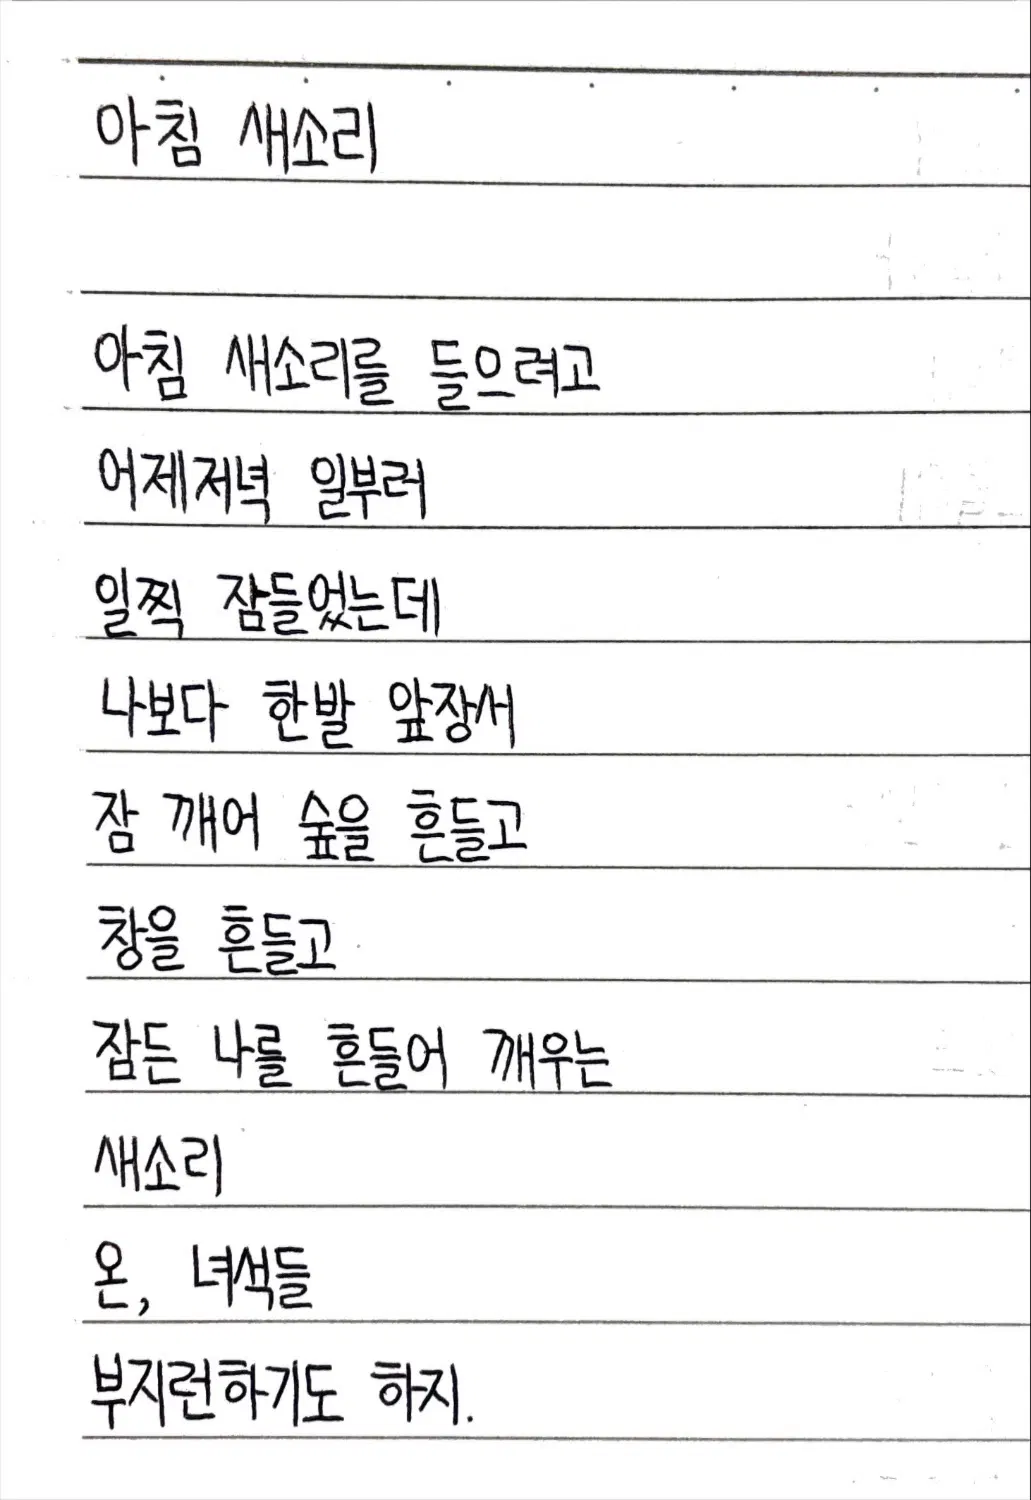 아침 새소리
아침 새소리를 들으려고
어제저녁 일부러
일찍 잠들었는데
나보다 한발 앞장서
잠 깨어 숲을 흔들고
창을 흔들고
잠든 나를 흔들어 깨우는
새소리
온, 녀석들
부지런하기도 하지.